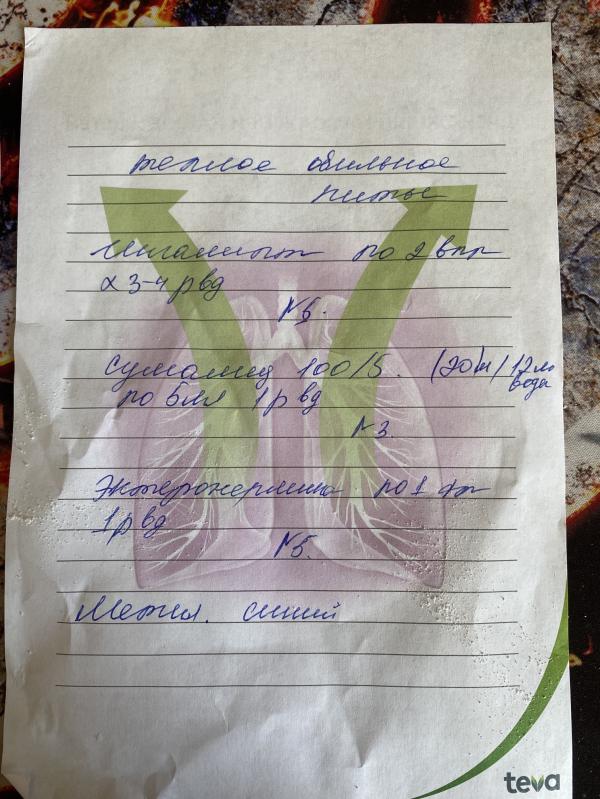 теплое обильное
питье
Ингалипт по 2 впр
х 3-4 рвд
N6.
Сумамед 100/5. (20ml) 12 мл
вода
по 5мл 1 рвд
N3.
Энтерожермина по 1 фл
1 рвд
N5.
Метил. синий
teva